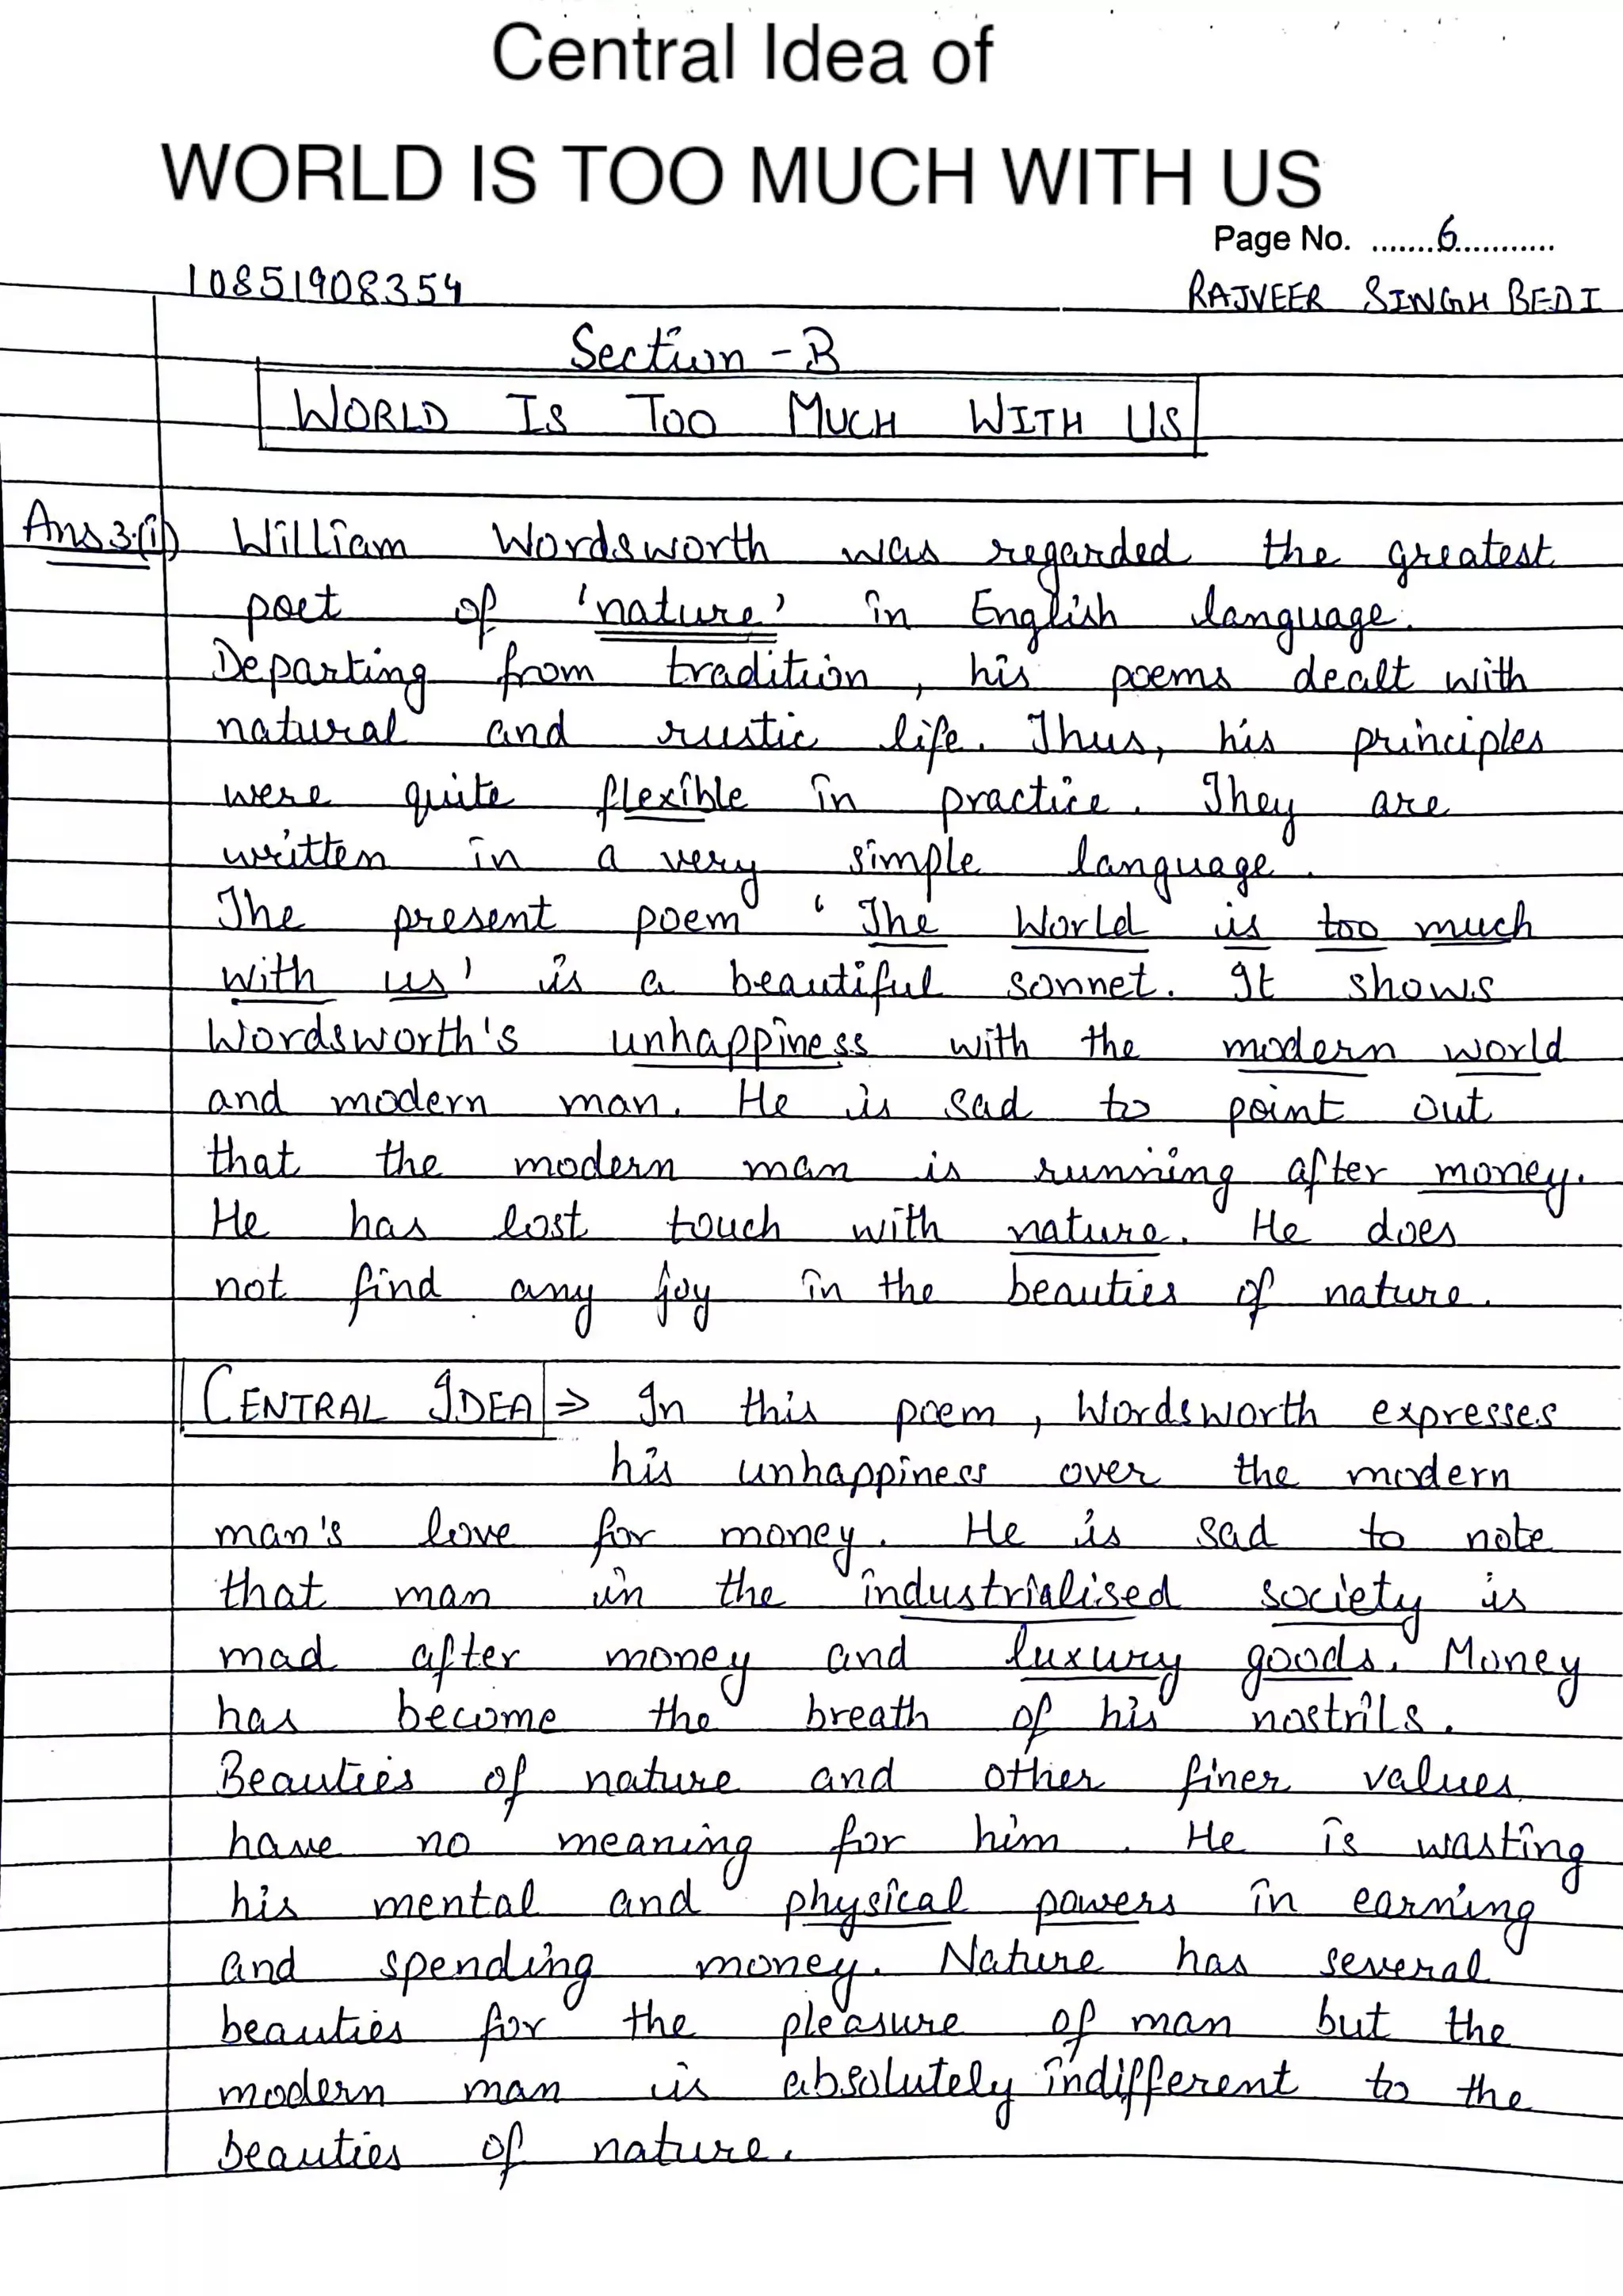 Central Idea of
WORLD IS TOO MUCH WITH US
Page No. .......6...........
10851908354 RAJVEER SINGH BEDI
Section - B
WORLD IS TOO MUCH WITH US
Ans 3.(i) William Wordsworth was regarded the greatest
poet of 'nature' in English language.
Departing from tradition, his poems dealt with
natural and rustic life. Thus, his principles
were quite flexible in practice. They are
written in a very simple language.
The present poem 'The World is too much
with us' is a beautiful sonnet. It shows
Wordsworth's unhappiness with the modern world
and modern man. He is sad to point out
that the modern man is running after money.
He has lost touch with nature. He does
not find any joy in the beauties of nature.
CENTRAL IDEA ⇒ In this poem, Wordsworth expresses
his unhappiness over the modern
man's love for money. He is sad to note
that man in the industrialised society is
mad after money and luxury goods. Money
has become the breath of his nostrils.
Beauties of nature and other finer values
have no meaning for him. He is wasting
his mental and physical powers in earning
and spending money. Nature has several
beauties for the pleasure of man but the
modern man is absolutely indifferent to the
beauties of nature.